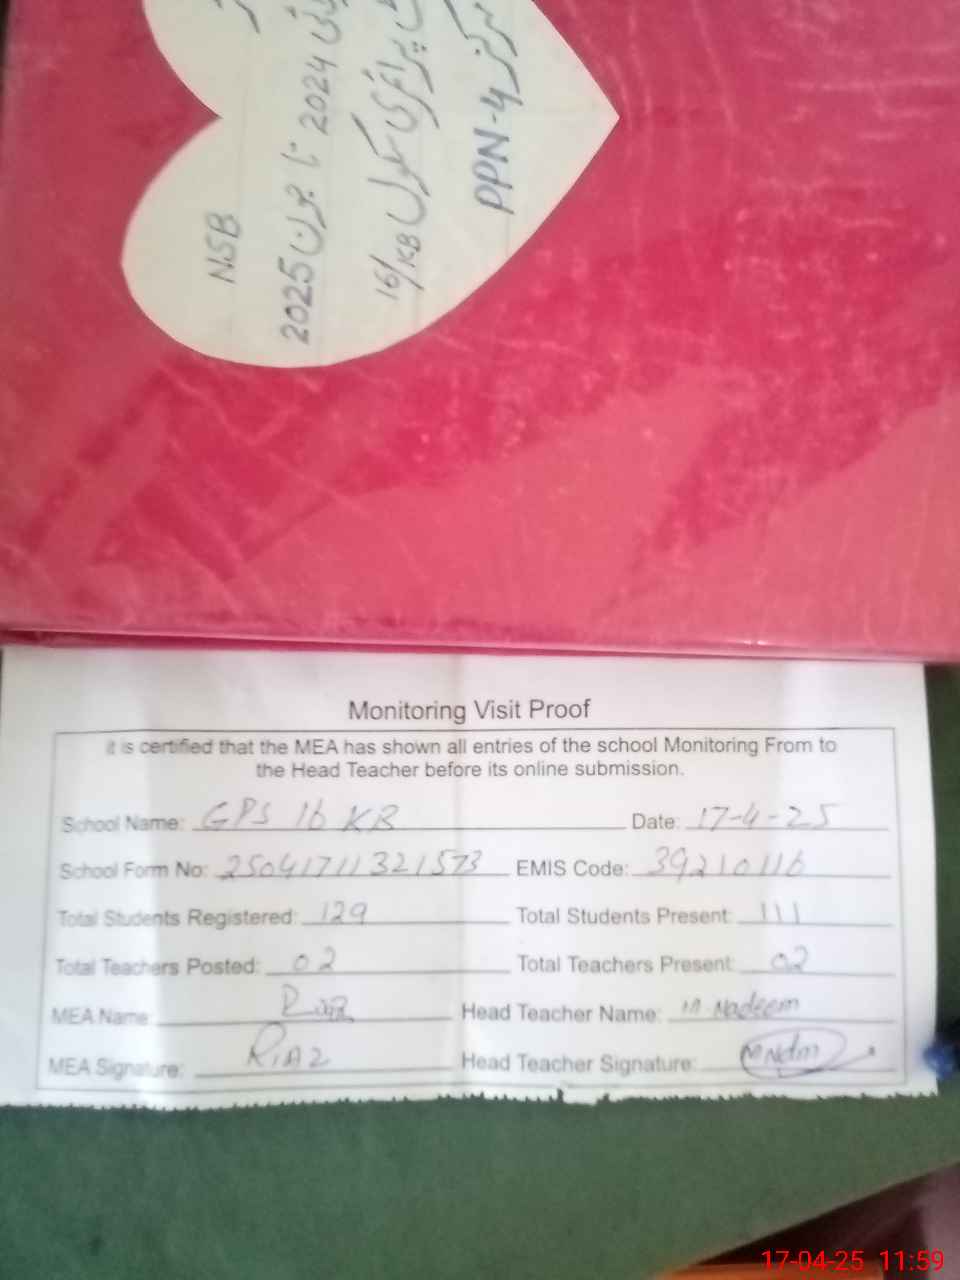 NSB
2024 تا جون 2025
پرائمری سکول 16/KB
مرکز PPN-4
Monitoring Visit Proof
it is certified that the MEA has shown all entries of the school Monitoring From to
the Head Teacher before its online submission.
School Name: GPS 16 KB Date: 17-4-25
School Form No: 25041711321573 EMIS Code: 39210116
Total Students Registered: 129 Total Students Present: 111
Total Teachers Posted: 02 Total Teachers Present: 02
MEA Name: Riaz Head Teacher Name: M. Nadeem
MEA Signature: RiAz Head Teacher Signature: MNdm
17-04-25 11:59